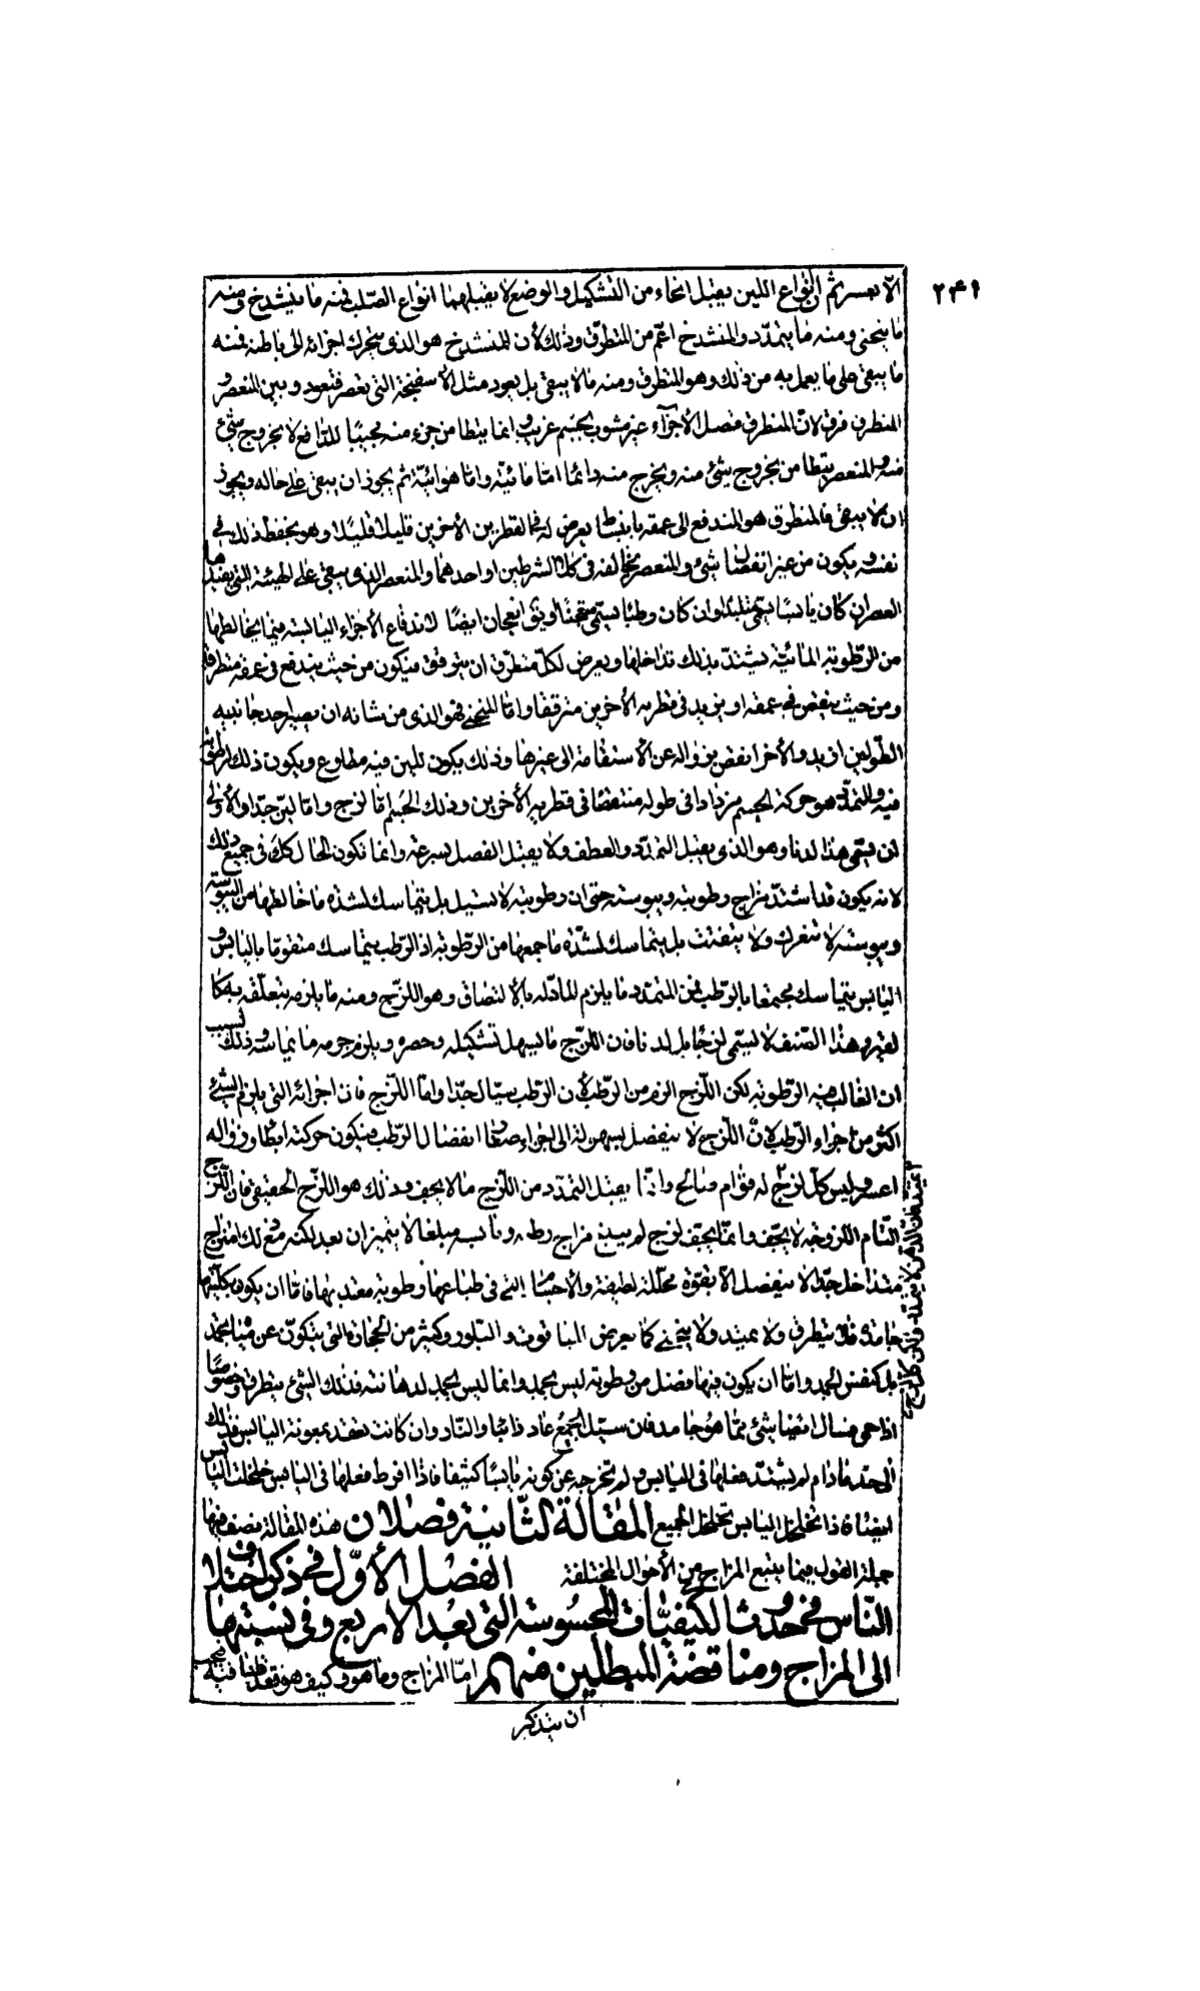 ٢٤١
الا بعسر ثم ان انواع اللين يقبل انحاء من التشكيل والوضع لا يقبلهما انواع الصلب فمنه ما ينشدخ ومنه
ما ينحنى ومنه ما يتمدد والمنشدخ اعم من المتطرق وذلك لأن المنشدخ هو الذى يتحرك اجزائه الى باطنه فمنه
ما يبقى على ما يعمل به من ذلك وهو المتطرق ومنه ما لا يبقى بل يعود مثل الاسفنجة التى تعصر فتعود وبين المنعصر و
المتطرق فرق لان المتطرق متصل الاجزاء غير مشوب بجسم غريب وانما يتطامن جزء منه مجيبا للدافع لا بخروج شئ
منه والمنعصر يتطامن بخروج شئ منه ويخرج منه دائما اما مائية واما هوائية ثم يجوز ان يبقى على حاله ويجوز
ان لا يبقى فالمتطرق هو المندفع الى عمقه بانبساط يعرض له فى القطرين الأخرين قليلا قليلا وهو يحفظ ذلك فى
نفسه ويكون من غير انفصال شئ والمنعصر يخالفه فى كلا الشرطين او احدهما والمنعصر الذى يبقى على الهيئة التى يفيدها
العصر ان كان يابسا يسمى متلبدا وان كان رطبا يسمى منعجنا ايضا لاندفاع الأجزاء اليابسة فيما يخالطها
من الرطوبة المائية يشتد بذلك تداخلها ويعرض لكل متطرق ان يترقق فيكون من حيث يندفع فى عمقه متطرقا
ومن حيث ينقص فى عمقه او يزيد فى قطريه الأخرين مترققا واما المنحنى فهو الذى من شانه ان يصير احد جانبيه
الطوليين ازيد والأخر انقص بزواله عن الأستقامة الى غيرها وذلك يكون للين فيه مطاوع ويكون ذلك لرطوبة
فيه والتمدد هو حركة الجسم مزدادا فى طوله منتقصا فى قطريه الأخرين وذلك الجسم اما لزج واما لين جدا والأولى
ان يسمى هذا لدنا وهو الذى يقبل التمدد والعطف ولا يقبل الفصل بسرعة وانما تكون الحال كك فى جميع ذلك
لانه يكون قد اشتد مزاج رطوبته ويبوسته حتى ان رطوبته لا تسيل بل يتماسك لشدة ما خالطها من اليبوسة
ويبوسته لا تتفرك ولا يتفتت بل يتماسك لشدة ما جمعها من الرطوبة اذ الرطب يتماسك متقوما باليابس و
اليابس يتماسك مجتمعا بالرطب فمن المتمدد ما يلزم الماد له بالالتصاق وهو اللزج ومنه ما يلزمه بتعلقه به كما
لغيره وهذا الصنف لا يسمى لزجا بل لدنا فان اللزج ما يسهل تشكيله وحصره ويلزم جرمه ما يماسه وذلك بسبب
ان الغالب فيه الرطوبة لكن اللزج الزم من الرطب لأن الرطب سيال جدا واما اللزج فان اجزائه التى يلزم الشئ
اكثر من اجزاء الرطب لان اللزج لا ينفصل بسهولة الى اجزاء صغار انفصال الرطب فيكون حركته ابطأ وزواله
اعسر وليس كل لزج له قوام صالح وانما يقبل التمدد من اللزج ما لا يجف وذلك هو اللزج الحقيقى فان اللزج
التام اللزوجة لا يجف وانما يجف لزج لم يبلغ مزاج رطبه ويابسه مبلغا لا يتميزان بعد لكنه مع ذلك امتزاج
متداخل جدا لا ينفصل الا بقوة محللة لطيفة والأجسام التى فى طباعها رطوبة معتد بها فاما ان يكون بكليتها
جامدة فلا يتطرق ولا يمتد ولا ينحنى كما يعرض للياقوت والبلور وكثير من الحجارة التى يتكون عن مياه تجمد
بل كنفس الجمد واما ان يكون فيها فضل من رطوبة ليس بجمد وانما ليس لجمد لدهانته فذلك الشئ يتطرق وخصوصا
اذا حمى فسال ايضا شئ مما هو جامد فان سيل الجميع عاد ذائبا والنار وان كانت تعقد بمعونة اليابس فذلك
الى حد ما دام لم يشتد فعلها فى اليابس ولم تخرجه عن كونه يابسا كثيفا فاذا افرط فعلها فى اليابس خلخلت اليابس
ايضا فاذا تخلخل اليابس تخلخل الجميع المقالة الثانية فصلان هذه المقالة نصف فيها
جملة القول فيما يتبع المزاج من الأحوال المختلفة الفصل الأول فى ذكر اختلاف
الناس فى حدوث الكيفيات المحسوسة التى بعد الاربع وفى نسبتها
الى المزاج ومناقضة المبطلين منهم اما المزاج وما هو وكيف هو فقد قلنا فيه فيجب
ان يتذكر